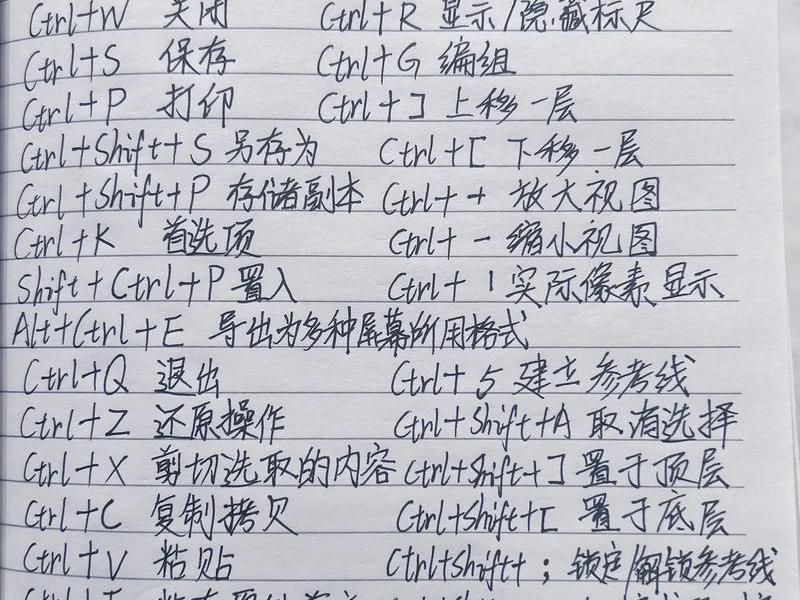 Ctrl+W 关闭 Ctrl+R 显示/隐藏标尺
Ctrl+S 保存 Ctrl+G 编组
Ctrl+P 打印 Ctrl+] 上移一层
Ctrl+Shift+S 另存为 Ctrl+[ 下移一层
Ctrl+Shift+P 存储副本 Ctrl++ 放大视图
Ctrl+K 首选项 Ctrl+- 缩小视图
Shift+Ctrl+P 置入 Ctrl+1 实际像素显示
Alt+Ctrl+E 导出为多种屏幕所用格式
Ctrl+Q 退出 Ctrl+5 建立参考线
Ctrl+Z 还原操作 Ctrl+Shift+A 取消选择
Ctrl+X 剪切选取的内容 Ctrl+Shift+] 置于顶层
Ctrl+C 复制拷贝 Ctrl+Shift+[ 置于底层
Ctrl+V 粘贴 Ctrl+Shift+; 锁定/解锁参考线